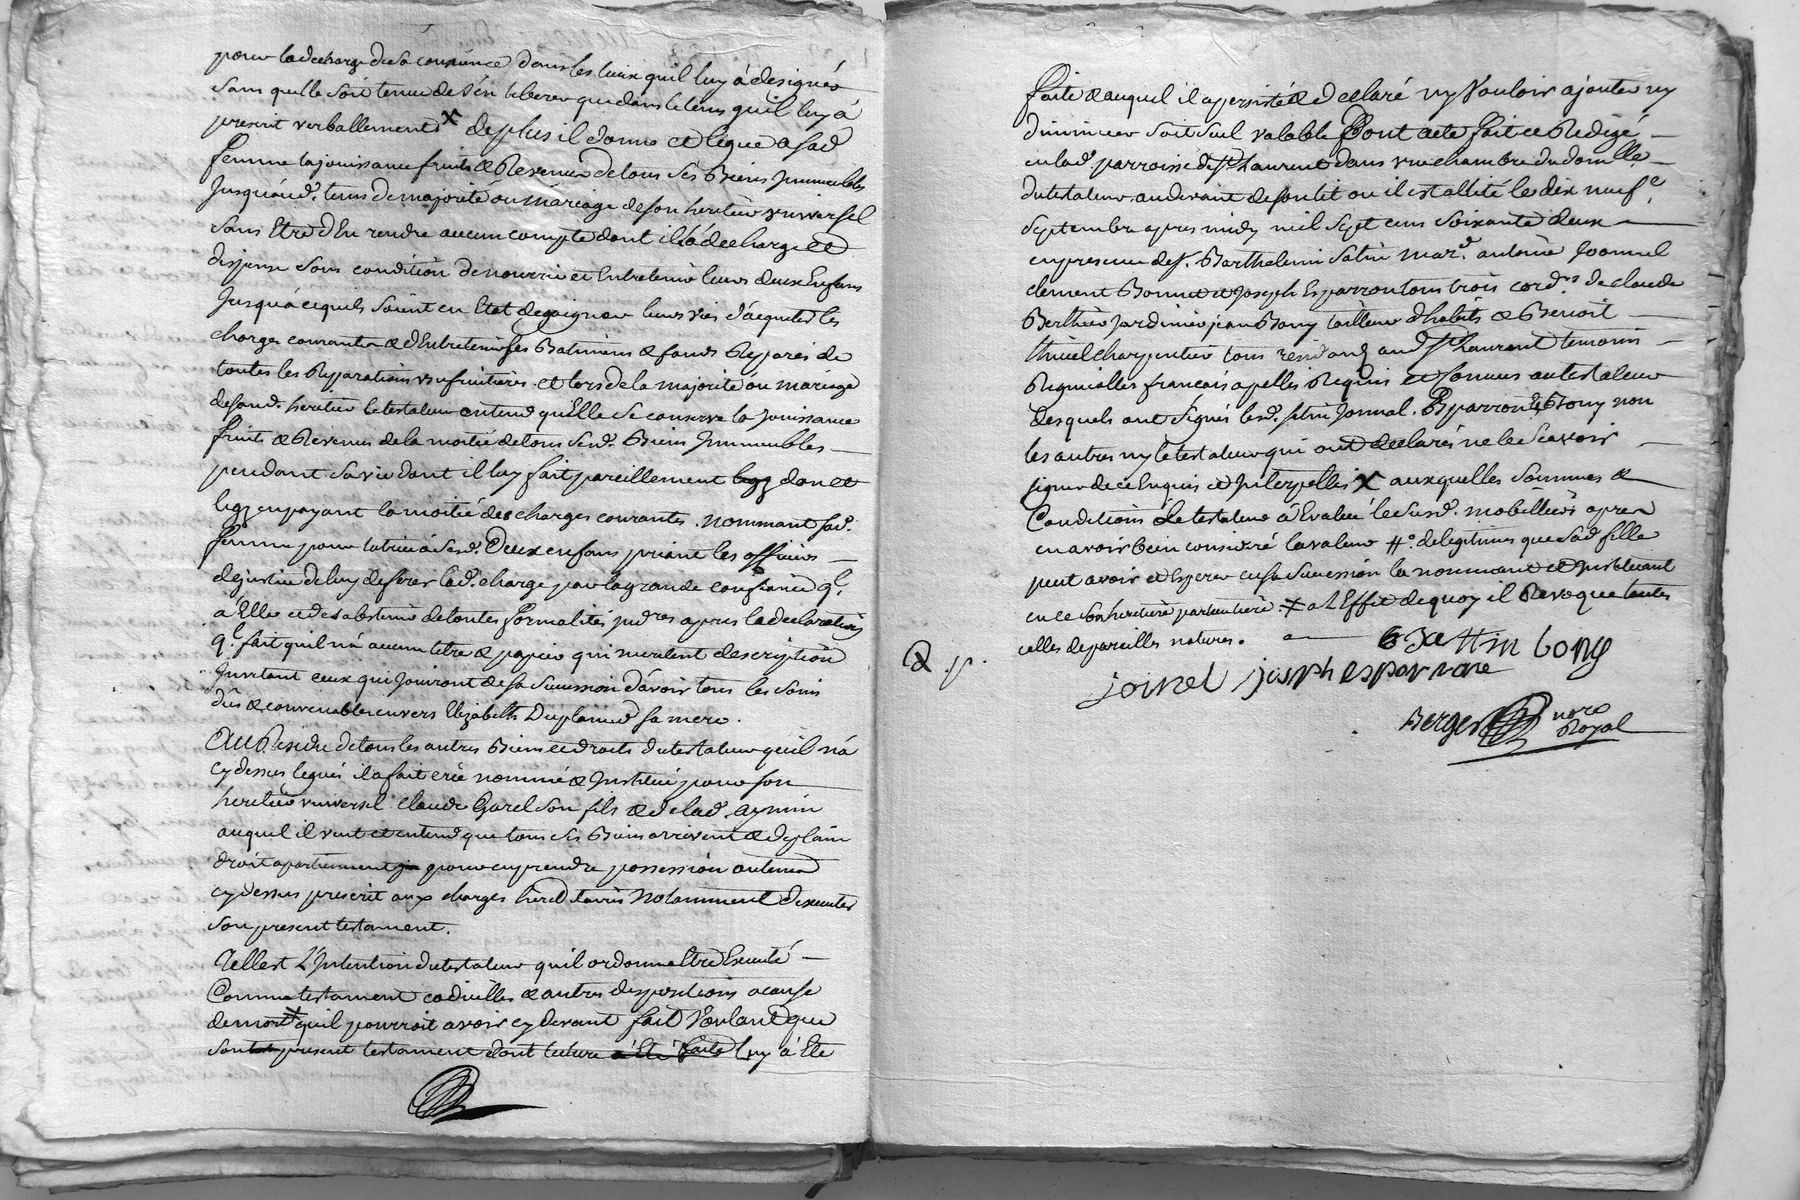 pour la decharge de sa consience dans les lieux quil luy à designés
sans quelle soit tenue de s'en liberer que dans le tems quil luy à
prescrit verballement X de plus il donne et legue a sad.
femme la jouissance fruits & Revenus de tous ses Biens Immeubles
Jusquàud. tems de majorité ou mariage de son heritier universel
sans Etre d'En rendre aucun compte dont il la decharge et
dispense sous condition de nourrir et Entretenir leurs deux Enfans
Jusqu'à ce quils soient en Etat de gaigner leurs vies d'acquiter les
charges courantes & d'Entretenir ses Batimens & fonds Reparés de
toutes les Reparations usufruitieres et lors de la majorité ou mariage
de sond. heritier le testateur entend qu'Elle se conserve la Jouissance
fruits & Revenus de la moitié de tous sesd. Biens Immeubles
pendant sa vie dont il luy fait pareillement legz don et
legz en payant la moitié des charges courantes. nommant sad.
femme pour tutrice à sesd. Deux enfans priant les officiers
de justice de luy deferer lad. charge par la grande confiance q.l
a'Elle et de s'abstenir de toutes formalités jud.res apres la declaration
q.l fait quil n'à aucun titre & papier qui meritent description
Invitant ceux qui Jouiront de sa succession d'avoir tous les soins
dûs & convenables envers Elizabeth Duplanud sa mere.
Au Residu de tous les autres Biens et droits du testateur quil n'à
cy dessus legués il a fait créé nommé & Institué pour son
heritier universel Claude Garel son fils & de lad. aymin
auquel il veut et entend que tous ses Biens arrivent & de plain
droit apartiennent pour en prendre possession au tems
cy dessus prescrit aux charges hereditaires Notamment d'executer
son present testament.
Telle est L'Intention du testateur quil ordonne Etre Executé
Comme testament codicilles & autres dispositions a cause
de mort X quil pourroit avoir cy devant fait Voulant que
son present testament dont lecture a Eté faite luy à Eté
faite & auquel il a persisté & declaré ny Vouloir ajouter ny
diminuer soit seul valable Dont acte fait et Redigé
en lad. parroisse de St Laurent dans une chambre du domille
du testateur au devant de son lit ou il est allité le dix neuf.e
septembre apres midy mil sept cens soixante deux
en presence de s.r Barthelemi Satin mar.d antoine Joannel
clement Bonnet et Joseph Esparron tous trois cord.rs de claude
Berthier Jardinier jean Bony tailleur d'habits & Benoit
thivel charpentier tous residans aud. St Laurent temoins
Regnicolles francais apellés Requis et Connus au testateur
Desquels ont signés lesd. satin Joannel. Esparron & Bony non
les autres ny le testateur qui ont declarés ne le Scavoir
signer de ce Enquis et Interpellés X auxquelles Sommes &
Conditions le testateur à Evalué le susd. mobillier apres
en avoir bien consideré la valeur #. de legitimes que sad. fille
peut avoir et Esperer en sa succession la nommant et Instituant
en ce son heritiere particuliere. X a L'Effet de quoy il Revoque toutes
celles de pareilles natures.
& .p.
B Sattin bony
joinel joseph esparrone
Berger no.re
Royal